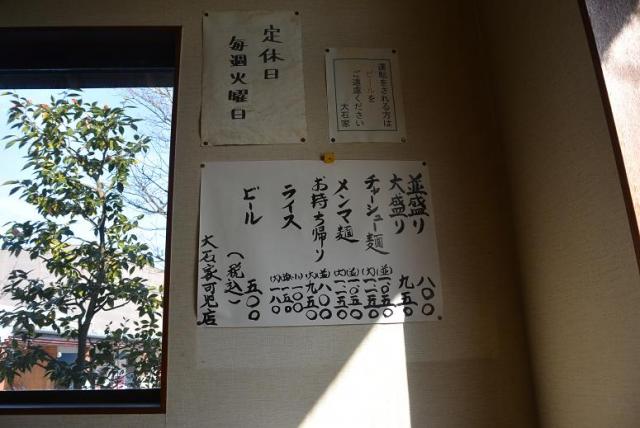 定休日
毎週火曜日
運転をされる方は
ビールを
ご遠慮ください
大石家
並盛り 八〇〇
大盛り 九五〇
チャーシュー麺 (並)一〇五〇
メンマ麺
お持ち帰り (並)八〇〇
(大)九五〇
ライス
ビール 五〇〇
(税込)
大石家可児店